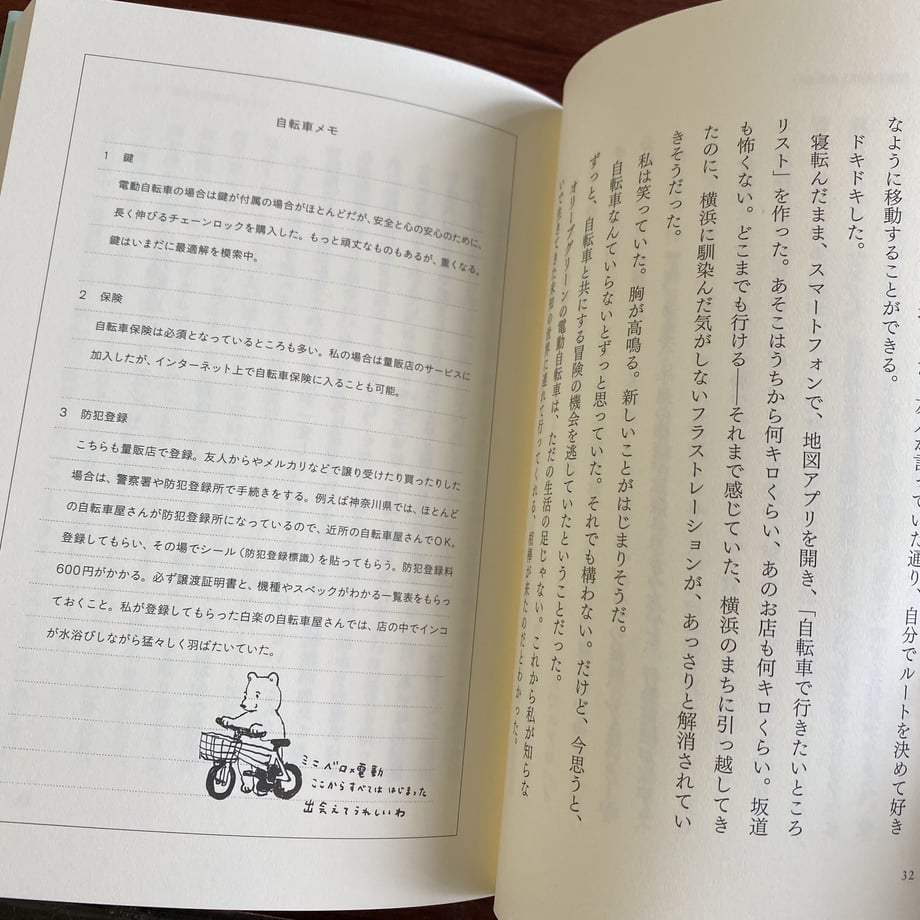 言っていた通り、自分でルートを決めて好き
なように移動することができる。
ドキドキした。
寝転んだまま、スマートフォンで、地図アプリを開き、「自転車で行きたいところ
リスト」を作った。あそこはうちから何キロくらい、あのお店も何キロくらい。坂道
も怖くない。どこまでも行ける――それまで感じていた、横浜のまちに引っ越してき
たのに、横浜に馴染んだ気がしないフラストレーションが、あっさりと解消されてい
きそうだった。
私は笑っていた。胸が高鳴る。新しいことがはじまりそうだ。
自転車なんていらないとずっと思っていた。それでも構わない。だけど、今思うと、
ずっと、自転車と共にする冒険の機会を逃していたということだった。
オリーブグリーンの電動自転車は、ただの生活の足じゃない。これから私が知らな
いで生きてきた未知の世界に連れて行ってくれる、相棒が来たのだとわかった。
32
自転車メモ
1 鍵
電動自転車の場合は鍵が付属の場合がほとんどだが、安全と心の安心のために、
長く伸びるチェーンロックを購入した。もっと頑丈なものもあるが、重くなる。
鍵はいまだに最適解を模索中。
2 保険
自転車保険は必須となっているところも多い。私の場合は量販店のサービスに
加入したが、インターネット上で自転車保険に入ることも可能。
3 防犯登録
こちらも量販店で登録。友人からやメルカリなどで譲り受けたり買ったりした
場合は、警察署や防犯登録所で手続きをする。例えば神奈川県では、ほとんど
の自転車屋さんが防犯登録所になっているので、近所の自転車屋さんでOK。
登録してもらい、その場でシール（防犯登録標識）を貼ってもらう。防犯登録料
600円がかかる。必ず譲渡証明書と、機種やスペックがわかる一覧表をもらっ
ておくこと。私が登録してもらった白楽の自転車屋さんでは、店の中でインコ
が水浴びしながら猛々しく羽ばたいていた。
ミニベロ×電動
ここからすべてははじまった
出会えてうれしいわ